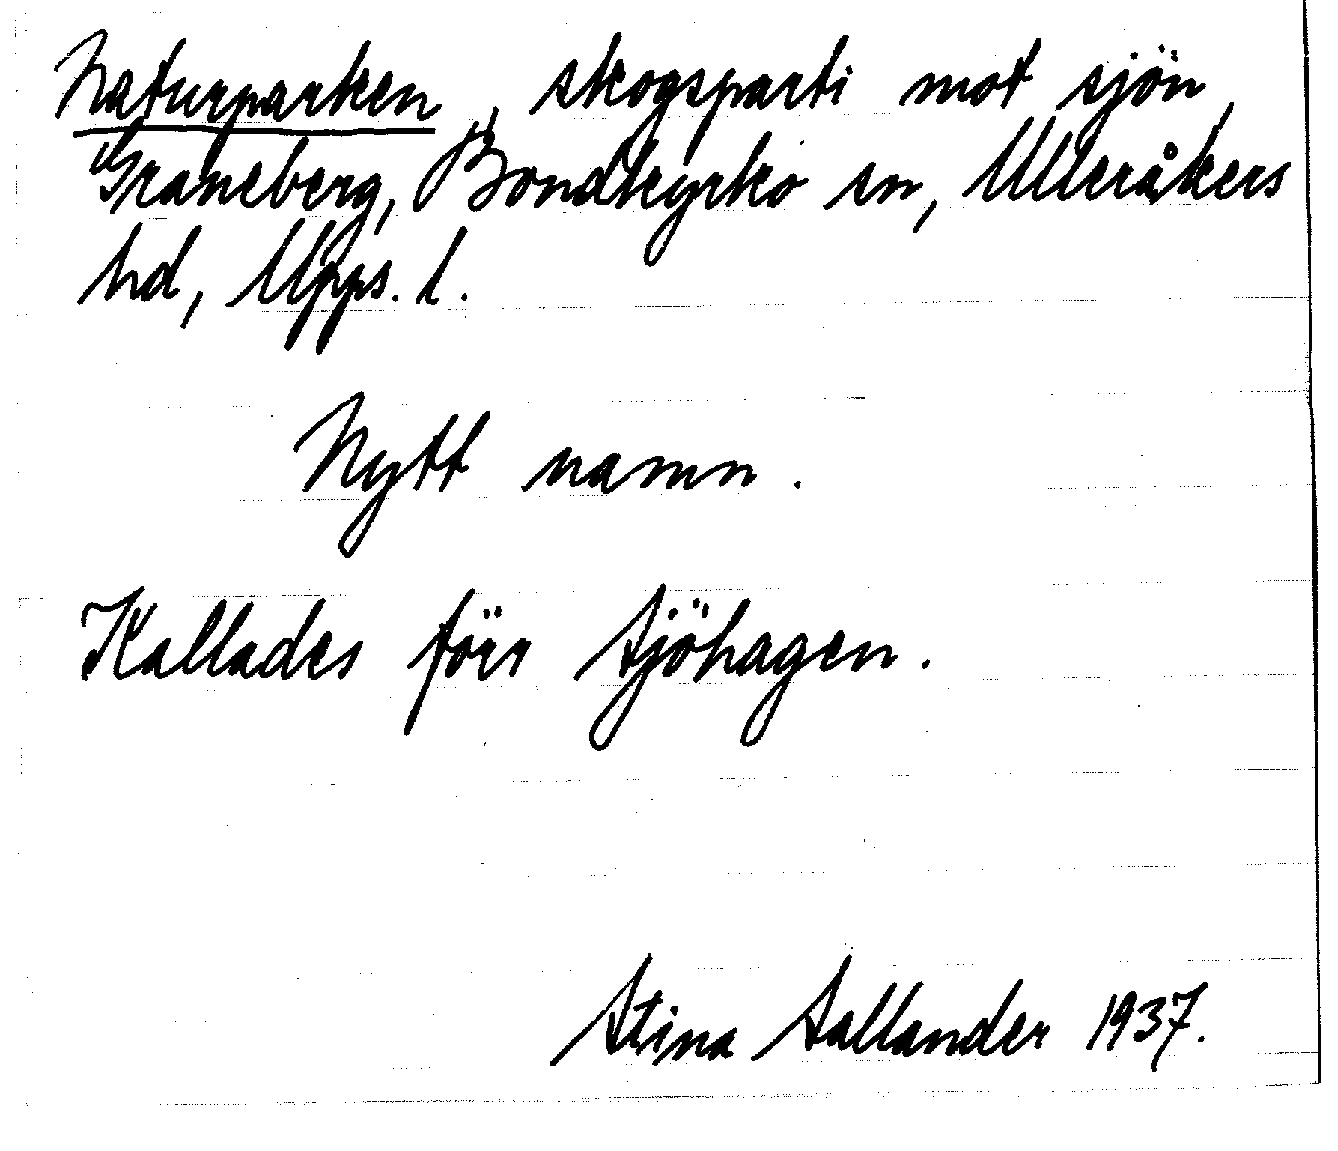 Naturparken, skogsparti mot sjön,
Graneberg, Bondkyrko sn, Ulleråkers
hd, Upps. l.
Nytt namn.
Kallades förr Sjöhagen.
Stina Sallander 1937.